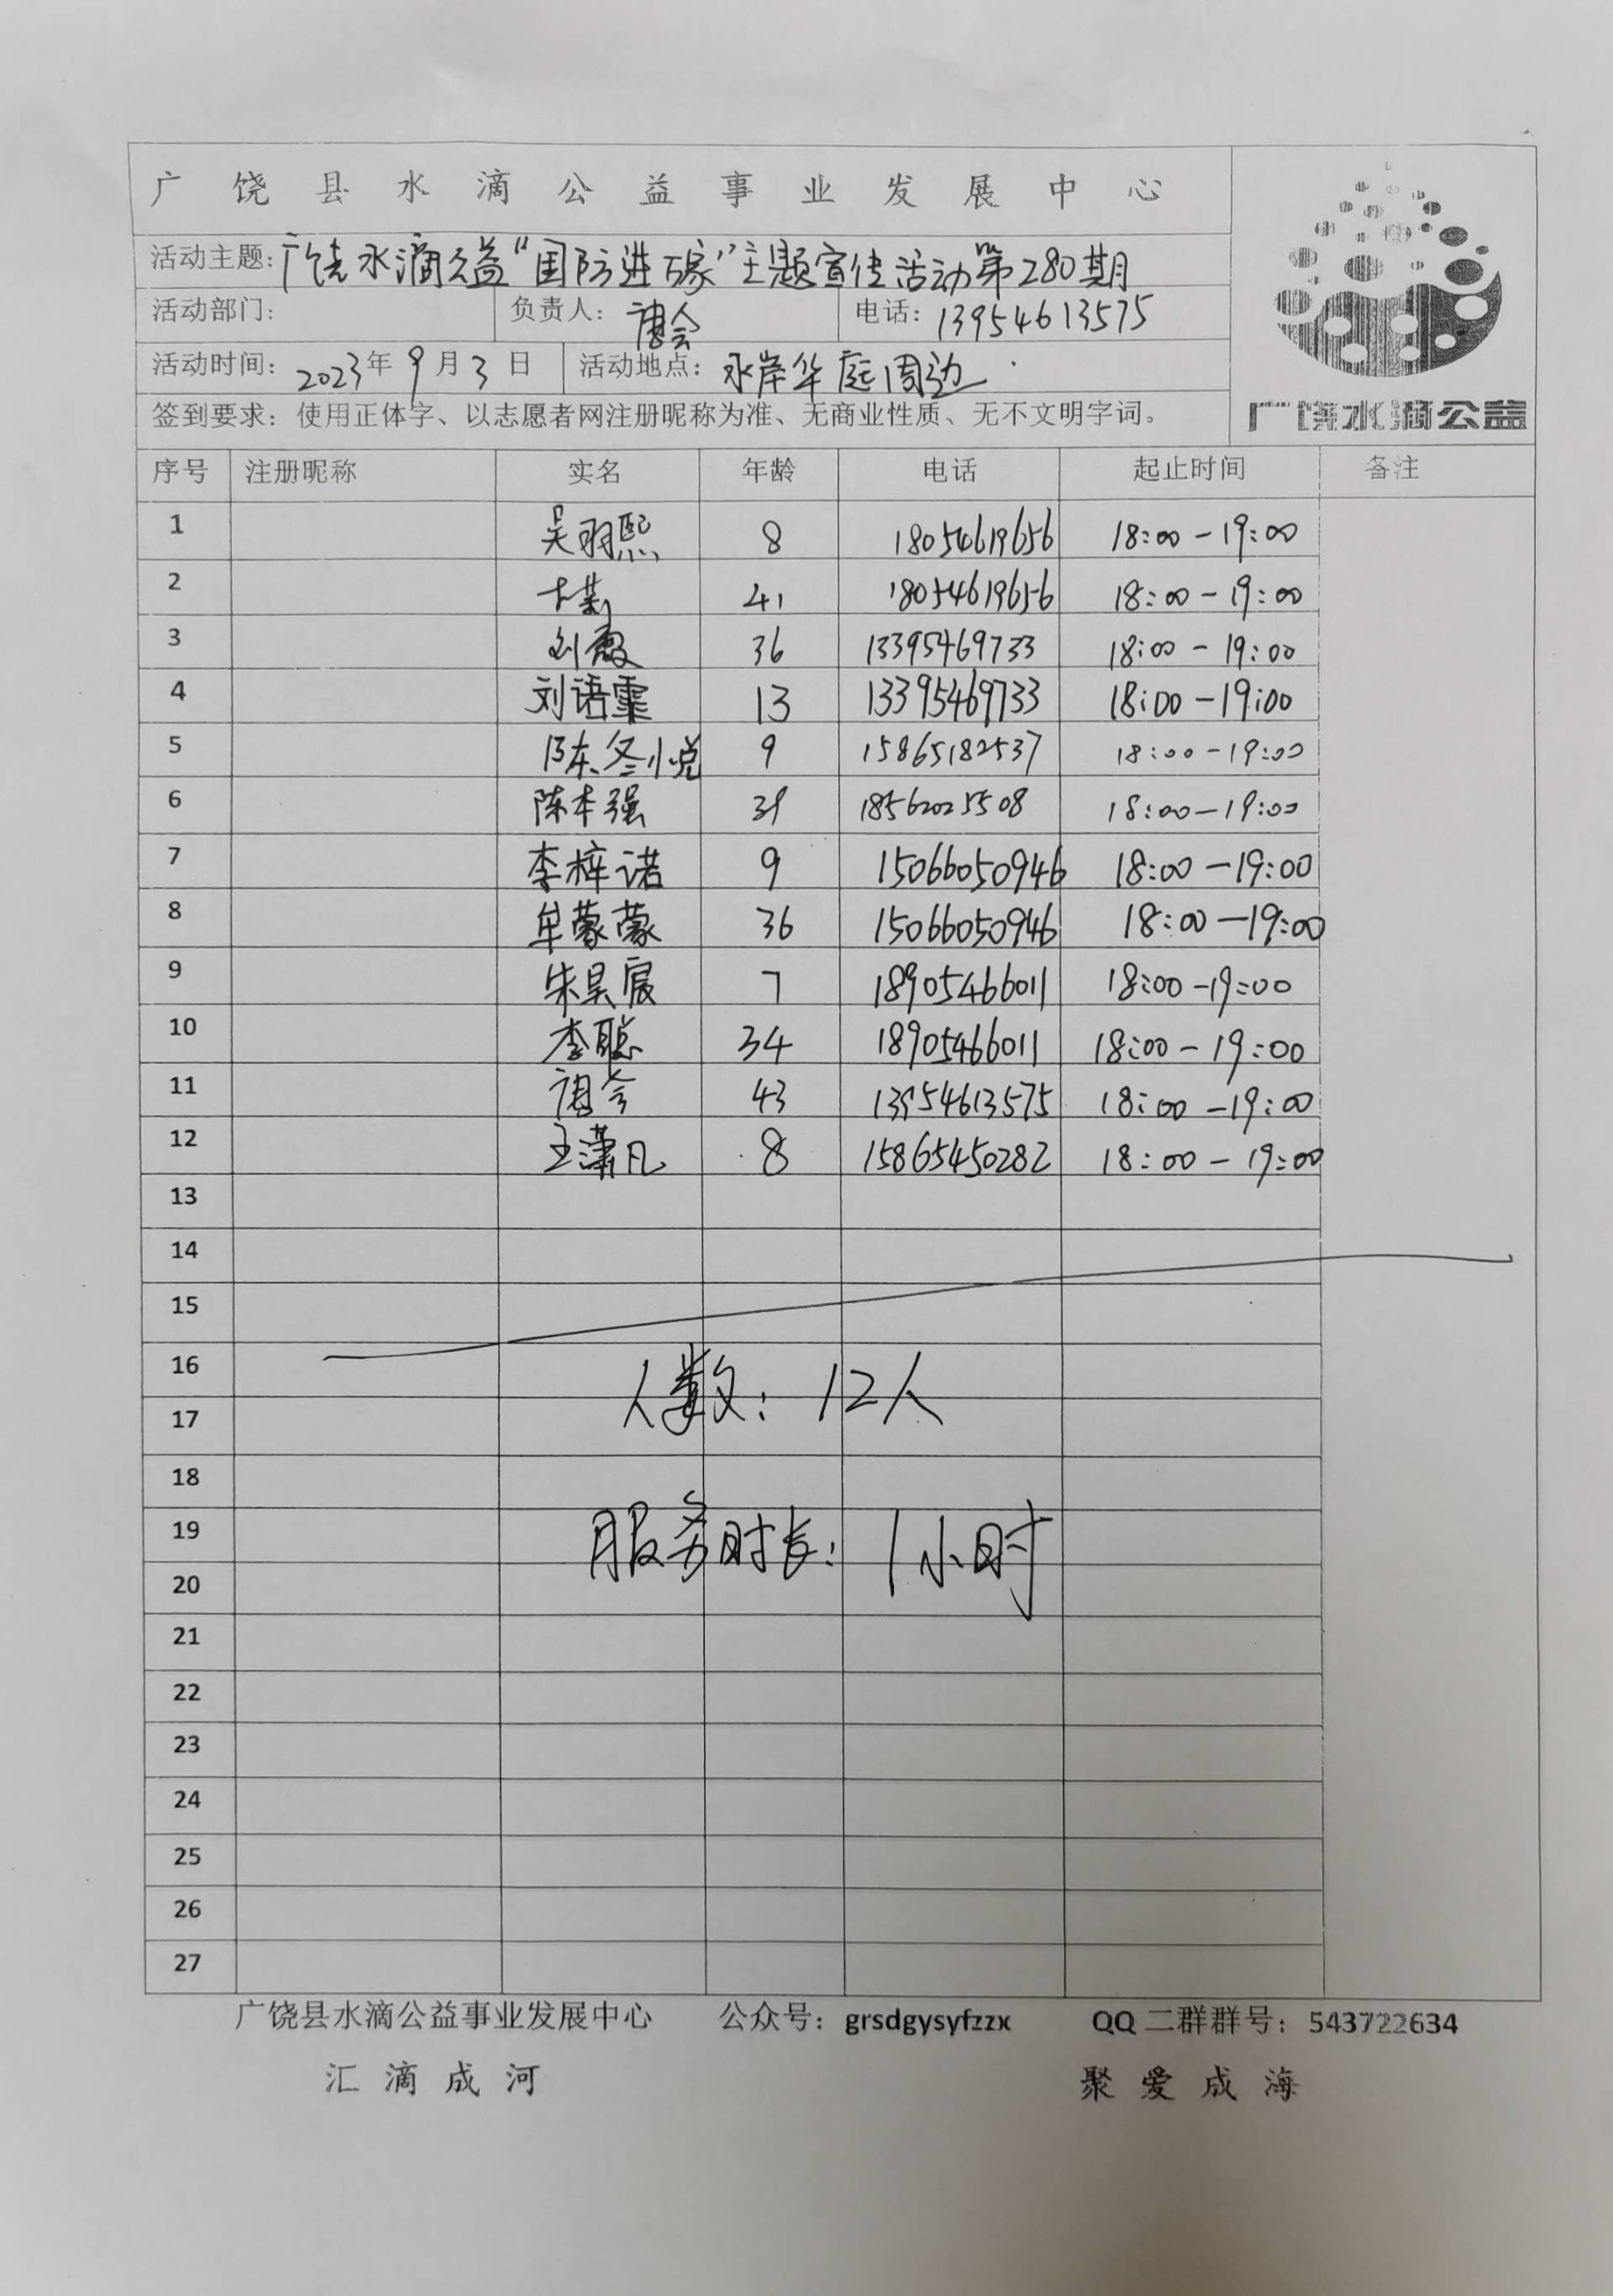 广饶县水滴公益事业发展中心
活动主题：广饶水滴公益“国防进万家”主题宣传活动第280期
活动部门： 负责人： 电话：13954613575
活动时间：2023年9月3日 活动地点：水岸华庭周边
签到要求：使用正体字、以志愿者网注册昵称为准、无商业性质、无不文明字词。
广饶水滴公益
序号 注册昵称 实名 年龄 电话 起止时间 备注
1 吴羽熙 8 18054619656 18:00-19:00
2 41 18054619656 18:00-19:00
3 刘薇 36 13395469733 18:00-19:00
4 刘语霏 13 13395469733 18:00-19:00
5 陈冬小悦 9 15865182537 18:00-19:00
6 陈本强 39 18562025508 18:00-19:00
7 李梓诺 9 15066050946 18:00-19:00
8 牟蒙蒙 36 15066050946 18:00-19:00
9 朱昊宸 7 18905466011 18:00-19:00
10 李聪 34 18905466011 18:00-19:00
11 43 13954613575 18:00-19:00
12 王潇凡 8 15865450282 18:00-19:00
13
14
15
16
人数：12人
17
18
19
服务时长：1小时
20
21
22
23
24
25
26
27
广饶县水滴公益事业发展中心 公众号：grsdgysyfzzx QQ二群群号：543722634
汇滴成河 聚爱成海